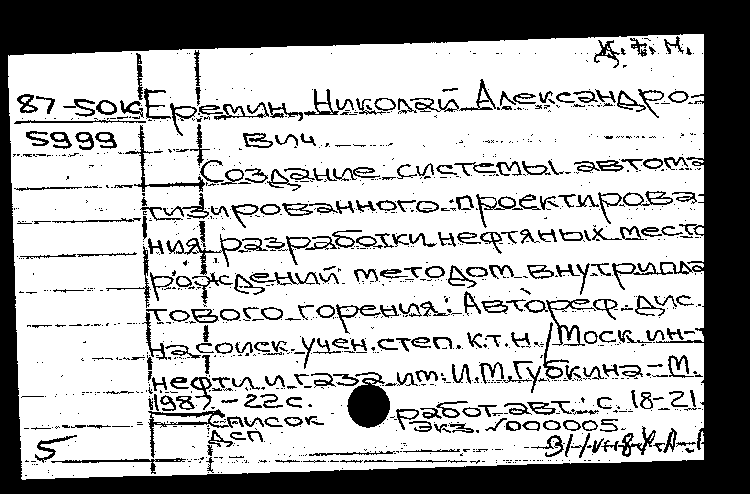 К.Т.Н.
87-50к Еремин, Николай Александро-
5999 вич.
Создание системы автома
тизированного проектирова-
ния разработки нефтяных место
рождений методом внутрипла
тового горения: Автореф. дис.
на соиск. учен. степ. к.т.н. / Моск. ин-т
нефти и газа им. И.М. Губкина - М.,
1987. - 22 с.
список работ авт.: с. 18-21.
ДСП экз. №000005.
5